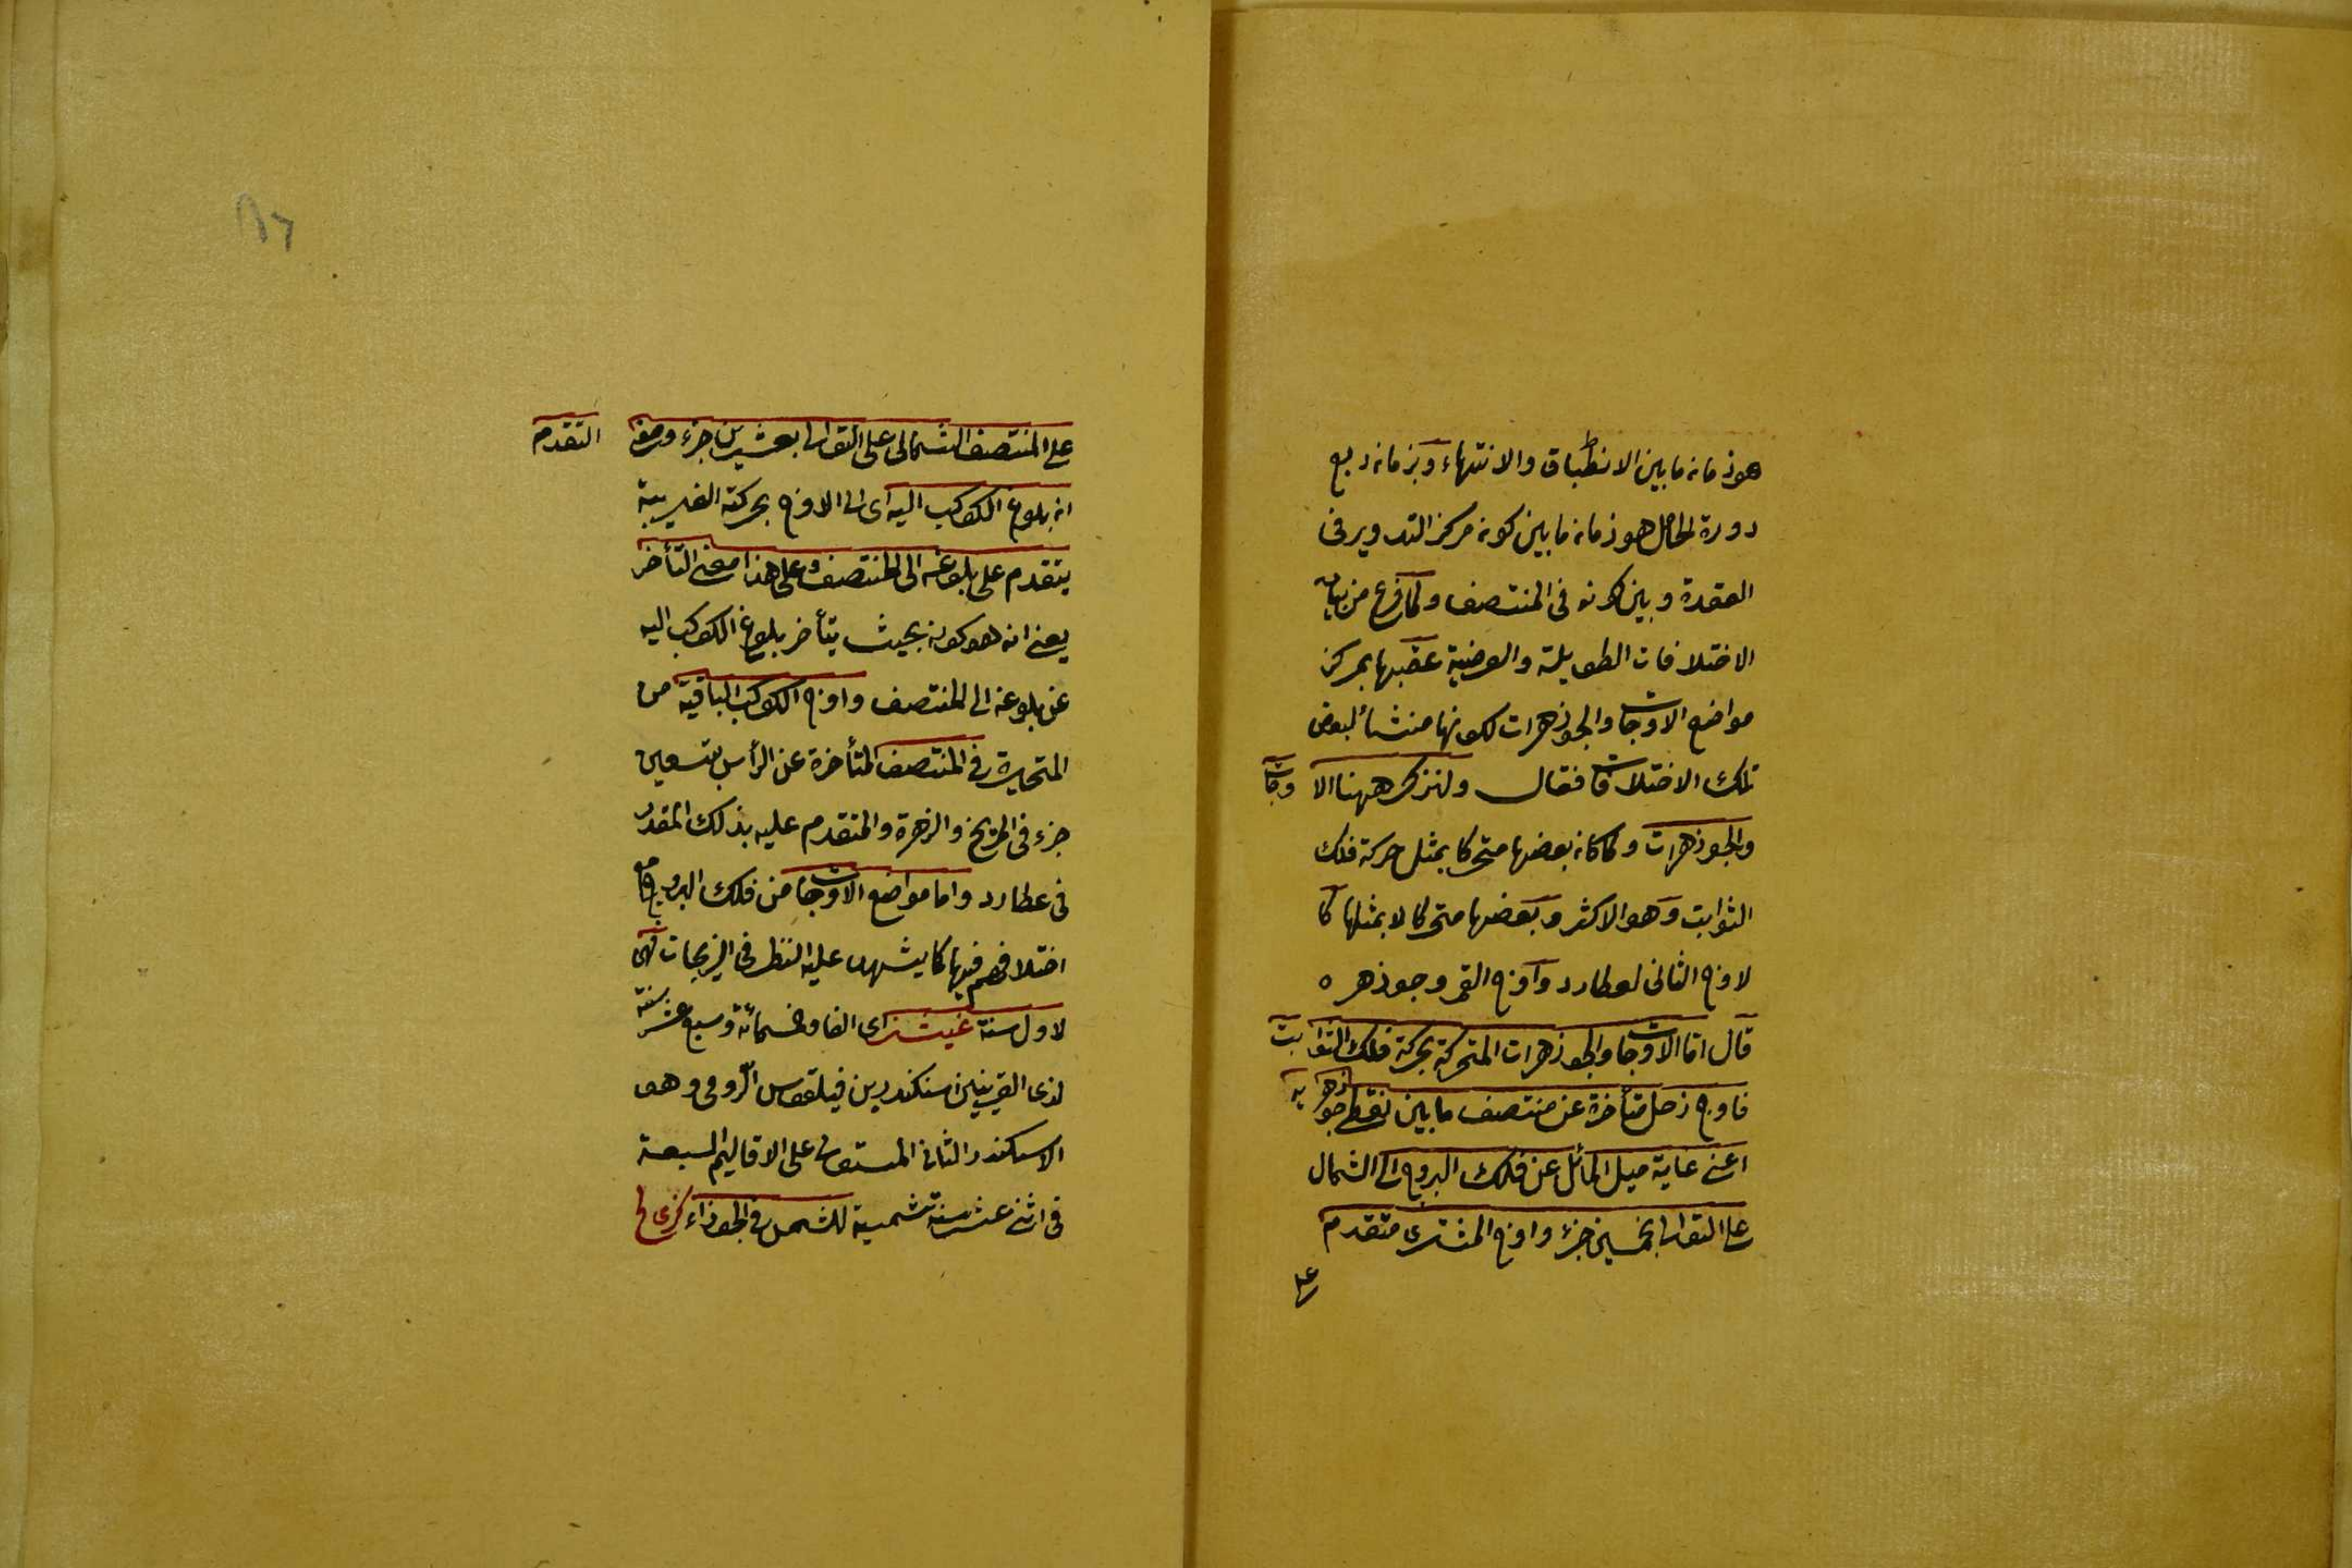 هو زمان ما بين الانطباق والانتهاء وبزمان ربع
دورة الحامل هو زمان ما بين كون مركز التدوير في
العقدة وبين كونه في المنتصف ولما فرغ من بيان
الاختلافات الطويلة والعرضية عقبها بمركز
مواضع الاوجات والجوزهرات لكونها منشأ لبعض
تلك الاختلافات فقال ولنذكر ههنا الاوجات
والجوزهرات ولما كان بعضها متحركا بمثل حركة فلك
الثوابت وهو الاكثر وبعضها متحركا لا بمثلها كا
لاوج الثاني لعطارد واوج القمر وجوزهره
قال اما الاوجات والجوزهرات المتحركة بحركة فلك الثوابت
فاوج زحل متأخرة عن منتصف ما بين نقطتي جوزهريه
اعني غاية ميل المائل عن فلك البروج الى الشمال
على التوالي بخمسين جزء واوج المشترى متقدم
على
على المنتصف الشمالى على التوالى بعشرين جزء ومعنى التقدم
ان بلوغ الكوكب اليه اى الى الاوج بحركته الغريبة
يتقدم على بلوغه الى المنتصف وعلى هذا معنى التأخر
يعنى انه هو كونه بحيث يتأخر بلوغ الكوكب اليه
عن بلوغه الى المنتصف واوج الكوكب الباقية من
المتحيرة في المنتصف المتأخرة عن الرأس بتسعين
جزء في المريخ والزهرة والمتقدم عليه بذلك المقدر
في عطارد واما مواضع الاوجات من فلك البروج مع
اختلافهم فيها كا يشهد عليه النظر في الزيجات فهى
لاول سنة غيثز اى الفا وخسمائة وسبع عشر سنة
لذى القرينين اسكندر بن فيلقوس الرومى وهو
الاسكندر الثانى المستولى على الاقاليم السبعة
في اثنى عشر سنة شمسية للشمس في الجوزاء